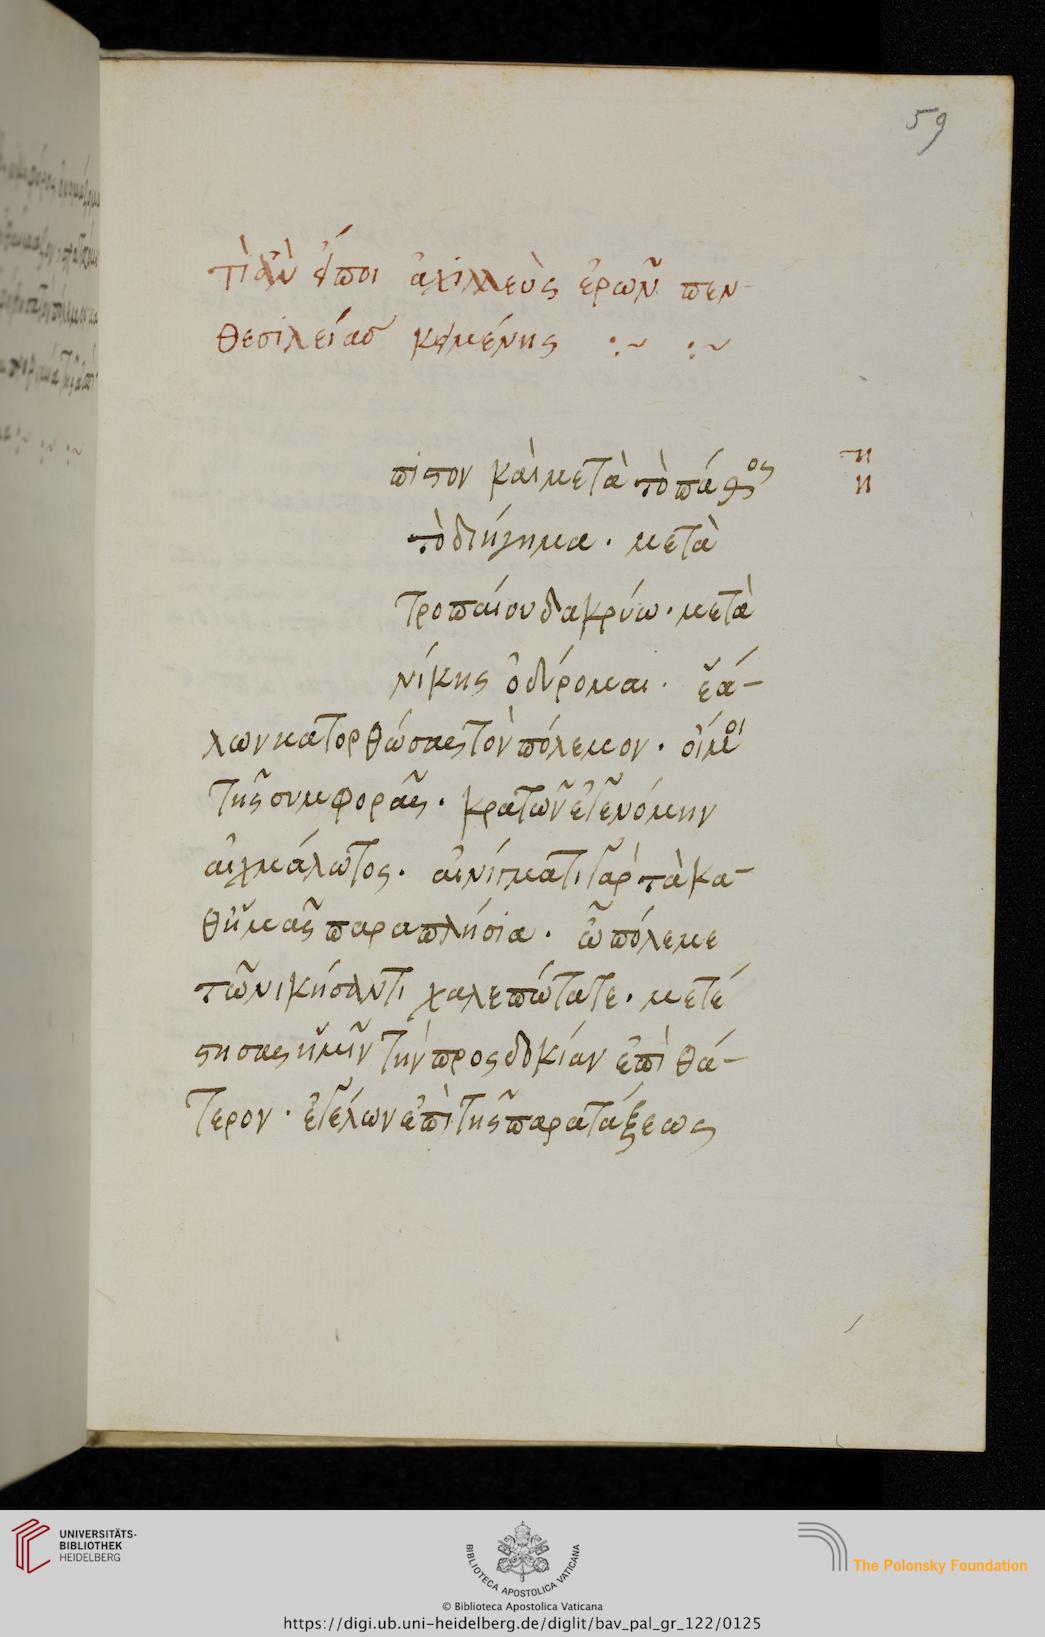 59
τί ἂν εἴποι ἀχιλλεὺς ἐρῶν πεν-
θεσιλείας κειμένης :~ :~
πιστον καὶ μετὰ τὸ πάθος
τὸ διήγημα· μετὰ
τροπαίου δακρύω· μετὰ
νίκης ὀδύρομαι· ἑά-
λων κατορθώσας τὸν πόλεμον· οἴμοι
τῆς συμφορᾶς· κρατῶν ἐγενόμην
αἰχμάλωτος· αἰνίγματι γὰρ τὰ κα-
θ' ἡμᾶς παραπλήσια· ὦ πόλεμε
τῶ νικήσαντι χαλεπώτατε· μετέ
στησας ἡμῖν τὴν προσδοκίαν ἐπὶ θά-
τερον· εἷλον ἐπὶ τῆς παρατάξεως
UNIVERSITÄTS-
BIBLIOTHEK
HEIDELBERG
BIBLIOTECA APOSTOLICA VATICANA
The Polonsky Foundation
© Biblioteca Apostolica Vaticana
https://digi.ub.uni-heidelberg.de/diglit/bav_pal_gr_122/0125